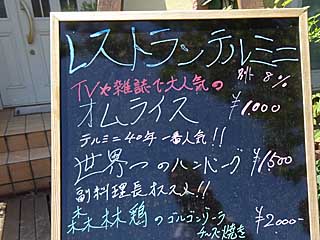 レストランテルミニ
TVや雑誌で大人気の 別 8%
オムライス ¥1,000
テルミニ40年一番人気!!
世界一のハンバーグ ¥1,500
副料理長オススメ!!
森林鶏のゴルゴンゾーラ
チーズ焼き ¥2,000-